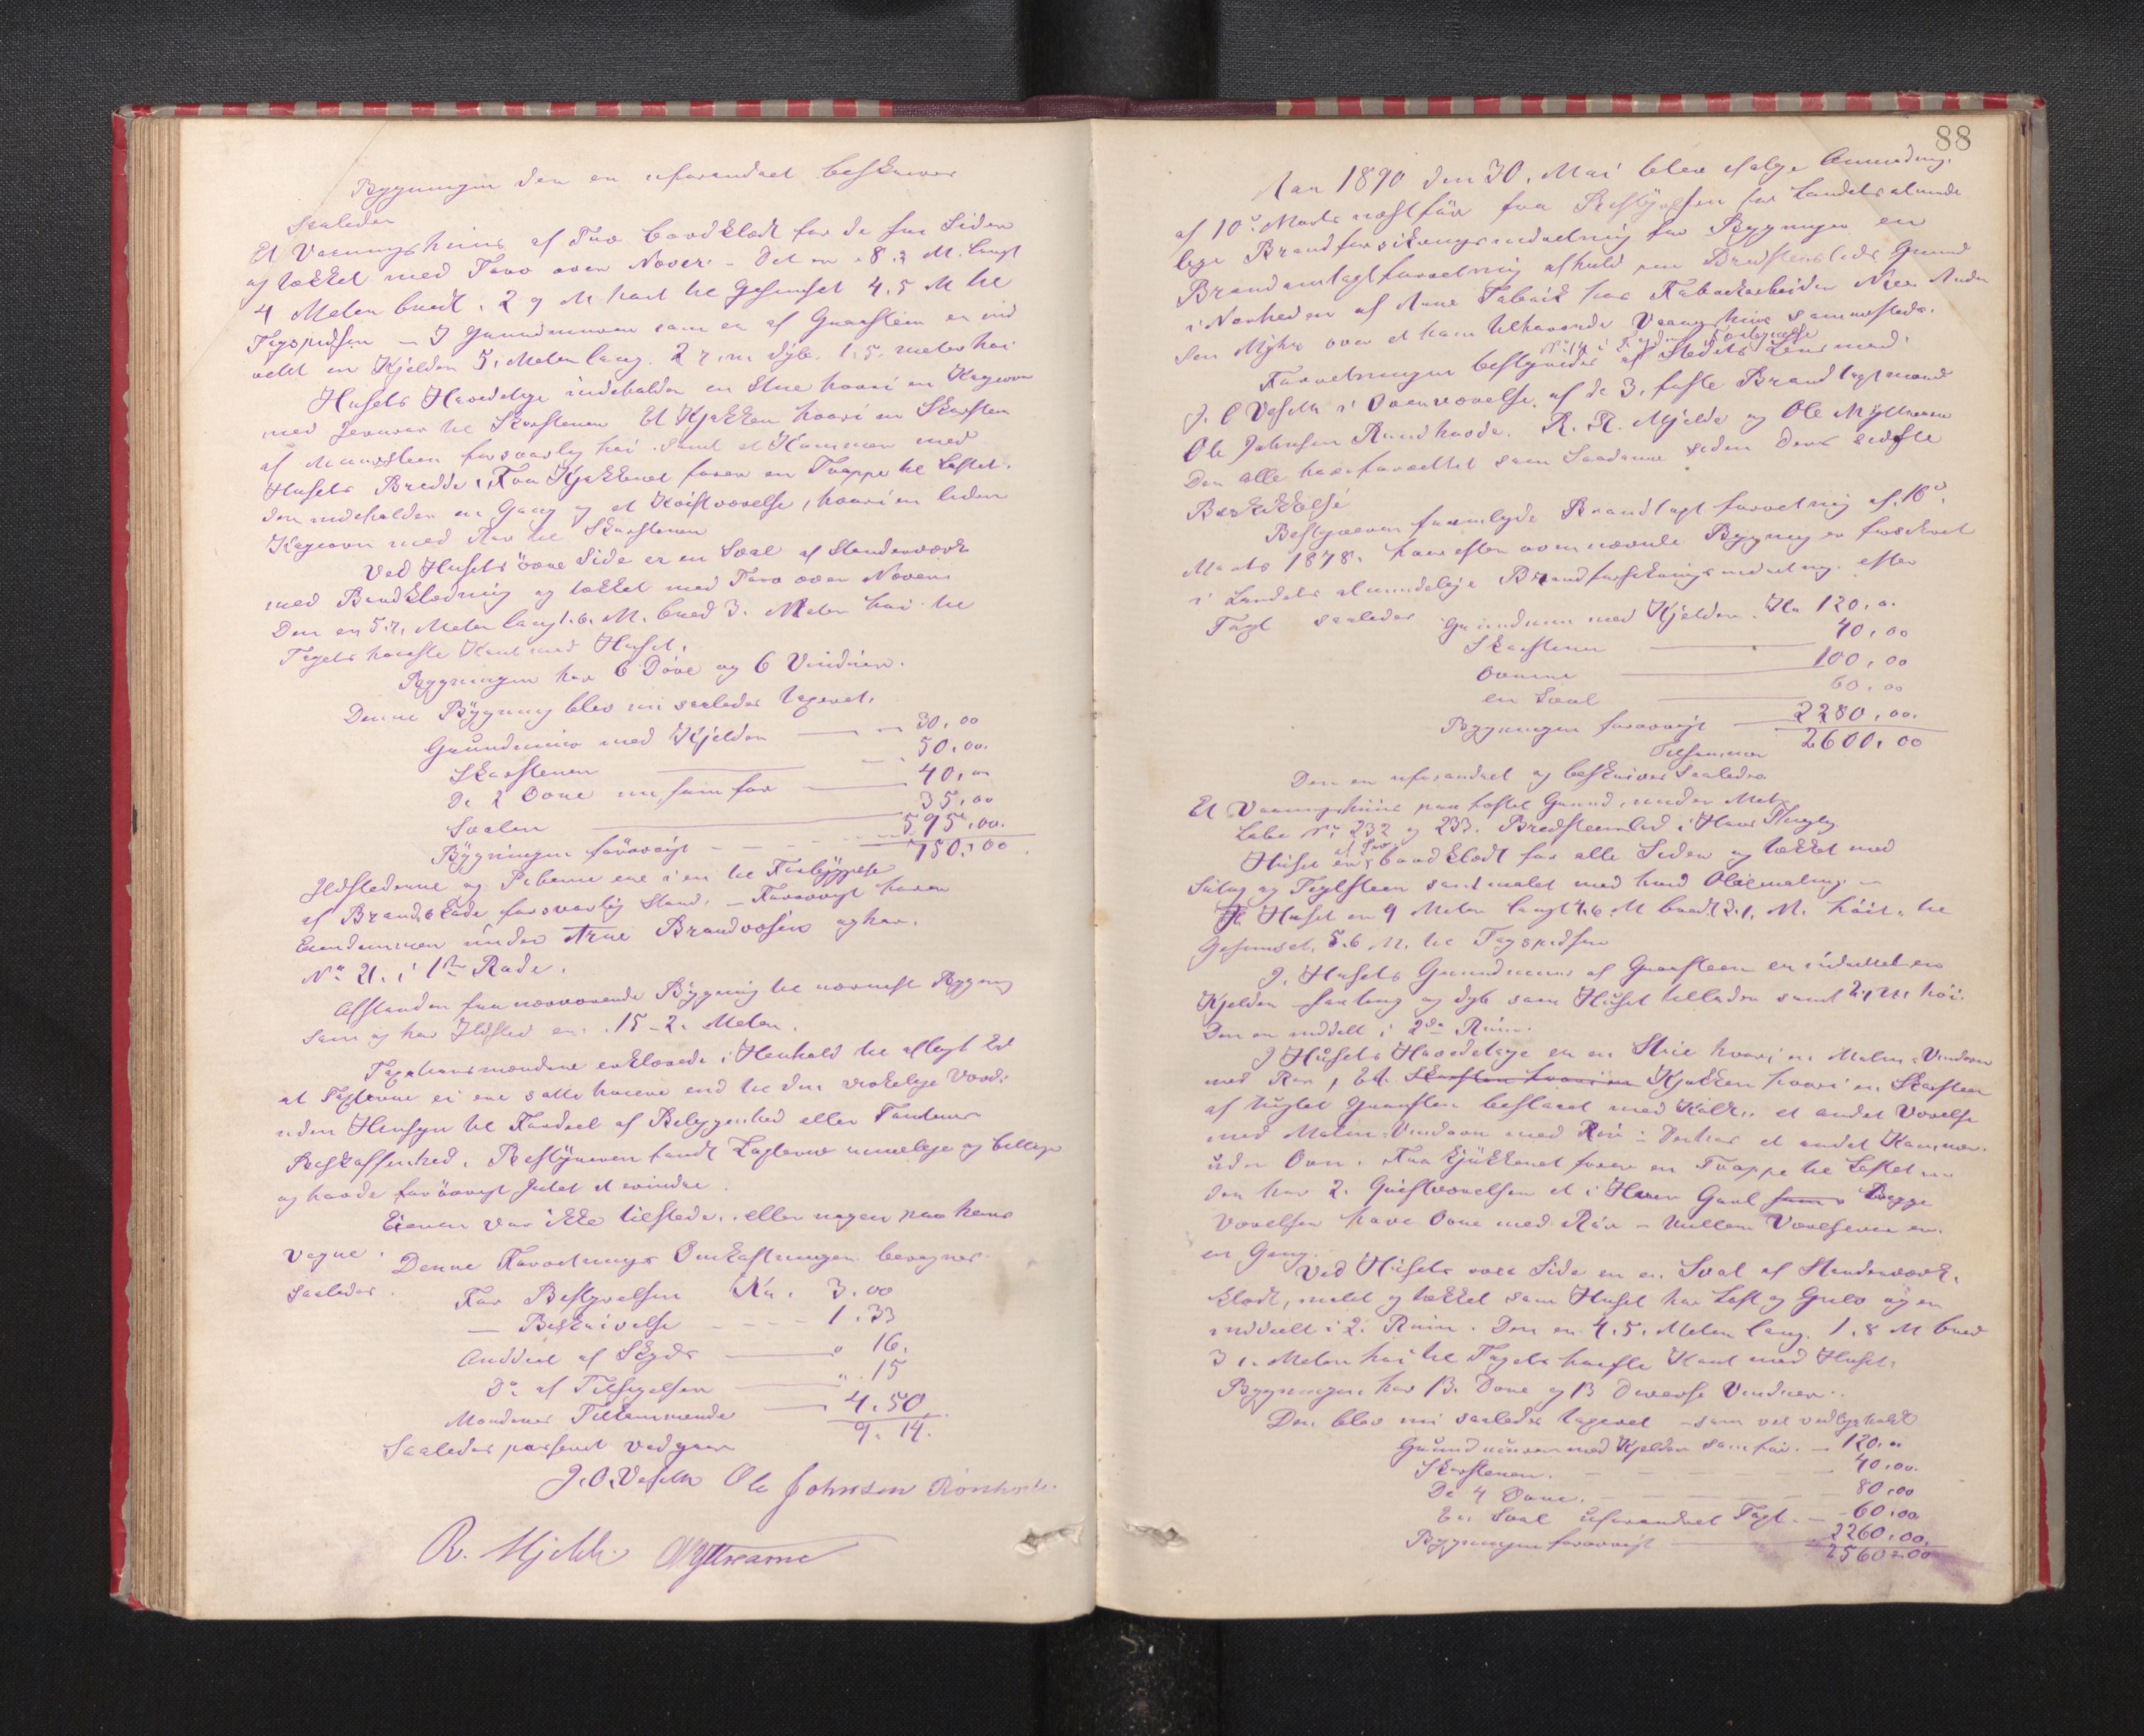 Bygningen den er uforandret beskrives
saaledes
Et Vaaningshuus af Træ bordklædt for de fire Sider
og tækket med Torv over Næver. - Det er 8.2 M. langt
4 Meter bredt, 2 9 M høit til Gesimset 4.5 M til
Tagspidsen - I Grundmuren som er af Graasteen er ind
redet en Kjelder 5. Meter lang. 2 7. m dyb. 1.5. meter høi
Husets Hovedetage indeholder en Stue hvori en Kagovn
med Jernrør til Skorstenen Et Kjøkken hvori en Skorsten
af Muursteen forsvarlig høi. Samt et Kammer med
Husets Bredde, Fra Kjøkkenet fører en Trappe til Loftet.
den indeholder en Gang og et Kvistværelse, hvori en liden
Kagovn med Rør til Skorstenen
Ved Husets øvre Side er en Sval af Stenderværk
med Bordklædning og tækket med Torv over Næver
Den er 5.7. Meter lang 1.6. M. bred 3. Meter høi til
Tagets høieste Kant med Huset.
Bygningen har 6 Døre og 6 Vinduer.
Denne Bygning blev nu saaledes taxeret.
Grundmuren med Kjelder 30,00
Skorstenen 50,00.
De 2 Ovne nu som før 40,00
Svalen 35,00
Bygningen forøvrigt 595,00.
750,00.
Ildstederne og Piberne ere i en til Forebyggelse
af Brandskade forsvarlig Stand. - Forøvrigt hører
Eiendommen under Arne Brandvæsen og har.
No 21. i 1ste Rode.
Afstanden fra nærværende Bygning til nærmest Bygning
som og har Ildsted er. 15-2. Meter.
Taxationsmændene erklærede i Henhold til aflagt Ed
at Taxterne ei ere satte høiere end til den virkelige Værdi
uden Hensyn til Fordeel af Beliggenhed eller Tomtens
Beskaffenhed. Bestyreren fandt Taxterne rimelige og billige
og havde forøvrigt Intet at erindre.
Eieren var ikke tilstede, eller nogen paa hans
Vegne.
Denne Forretnings Omkostninger beregnes
saaledes.
For Bestyrelsen Kr. 3.00
— Beskrivelse 1.33
Anddeel af Skyds " 16.
Do af Tilsigelsen " 15
Mændenes Tilkommende 4.50
9.14.
Saaledes passeret vedgaaes
J.O. Veseth Ole Johnsen Rønhovde.
R. Mjelde O Myttnæme
88
Aar 1890 den 30. Mai blev ifølge Anmodning
af 10de Marts næstfør fra Bestyrelsen for Landets alminde
lige Brandforsikringsindretning for Bygninger en
Brandomtaxtforretning afholdt paa Bredsteensleds Grund
i Nærheden af Arne Fabrik hos Fabrikarbeider Nils Ander
sen Myhre over et ham tilhørende Vaaningshuus sammesteds.
Forretningen bestyredes af Stedets Lensmand
J. O Veseth i Overværelse af de 3. faste Brandtaxtmænd
Ole Johnsen Rundhovde. R. R. Mjelde og Ole Myttnæme
Der alle have forrettet som Saadanne siden deres sidste
Beskikkelse
Bestyreren fremlagde Brandtaxtforretning af. 16de.
Marts 1878. hvorefter ovennævnte Bygning er forsikret
i Landets almindelige Brandforsikringsindretning efter
Taxt saaledes Grundmur med Kjelder. Kr 120,00.
Skorstenen 40,00
Ovnene 100,00
en Sval 60,00
Bygningen forøvrigt 2280,00.
Tilsammen 2600,00
Den er uforandret og beskrives saaledes
Et Vaaningshuus paa fæstet Grund, under Matr.
Løbe No 232 og 233. Bredsteensled i Haus Thinglag.
af Træ
Huset er bordklædt for alle Sider og tækket med
Sutag og Teglsteen samt malet med hvid Oliemaling -
Huset er 9 Meter langt 4.6. M bredt 3.1. M. høit til
Gesimset. 5.6 M. til Tagspidsen
I. Husets Grundmuur af Graasteen er indrettet en
Kjelder saa lang og dyb som Huset tillader samt 2,1 M. høi.
Den er inddelt i 2de Rum.
I Husets Hovedetage er en Stue hvori en Malm-Vindovn
med Rør, Et Skorsten hvori en Kjøkken hvori en Skorsteen
af hugget Graasteen beslaaet med Kalk, et andet Værelse
med Malm-Vindovn med Rør - Derhos et andet Kammer.
uden Ovn. Fra Kjøkkenet fører en Trappe til Loftet
den har 2. Kvistværelser et i Hver Gavl som Begge
Værelser have Ovne med Rør - Mellem Værelserne er.
en Gang.
Ved Husets øvre Side er en Sval af Stenderværk.
klædt, malet og tækket som Huset har Loft og Gulv og er
inddeelt i 2. Rum. Den er 4.5. Meter lang. 1.8 M bred
3 1. Meter høi til Tagets høieste Kant med Huset.
Bygningen har 13. Døre og 13 Diverse Vinduer.
Den blev nu saaledes taxeret - som vel vedligeholdt
Grundmuren med Kjelder som før. - 120,00
Skorstenen. 40,00.
De 4 Ovne. 80,00
En Sval uforandret Taxt. - 60,00
Bygningen forøvrigt 2260,00.
2560,00